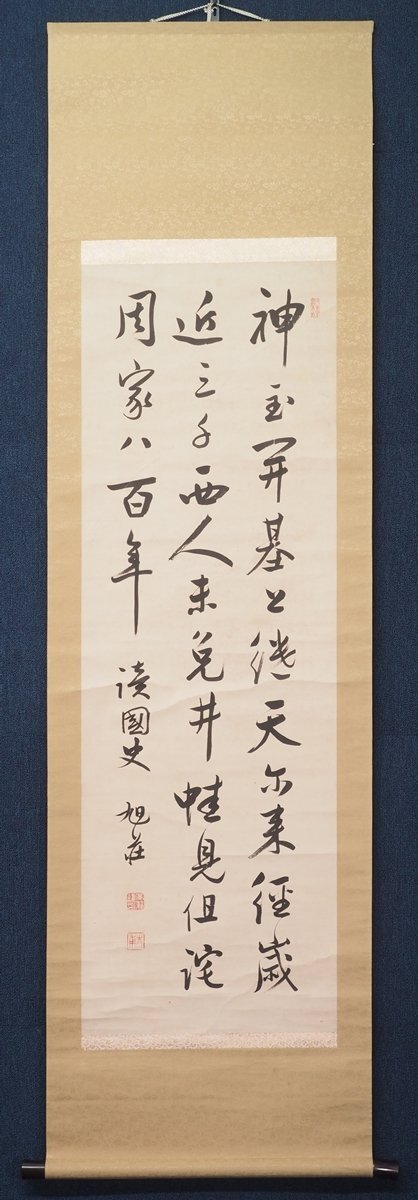 神武開基上継天尓来經歳
近三千西人未免井蛙見但詫
周家八百年
讀國史　旭荘